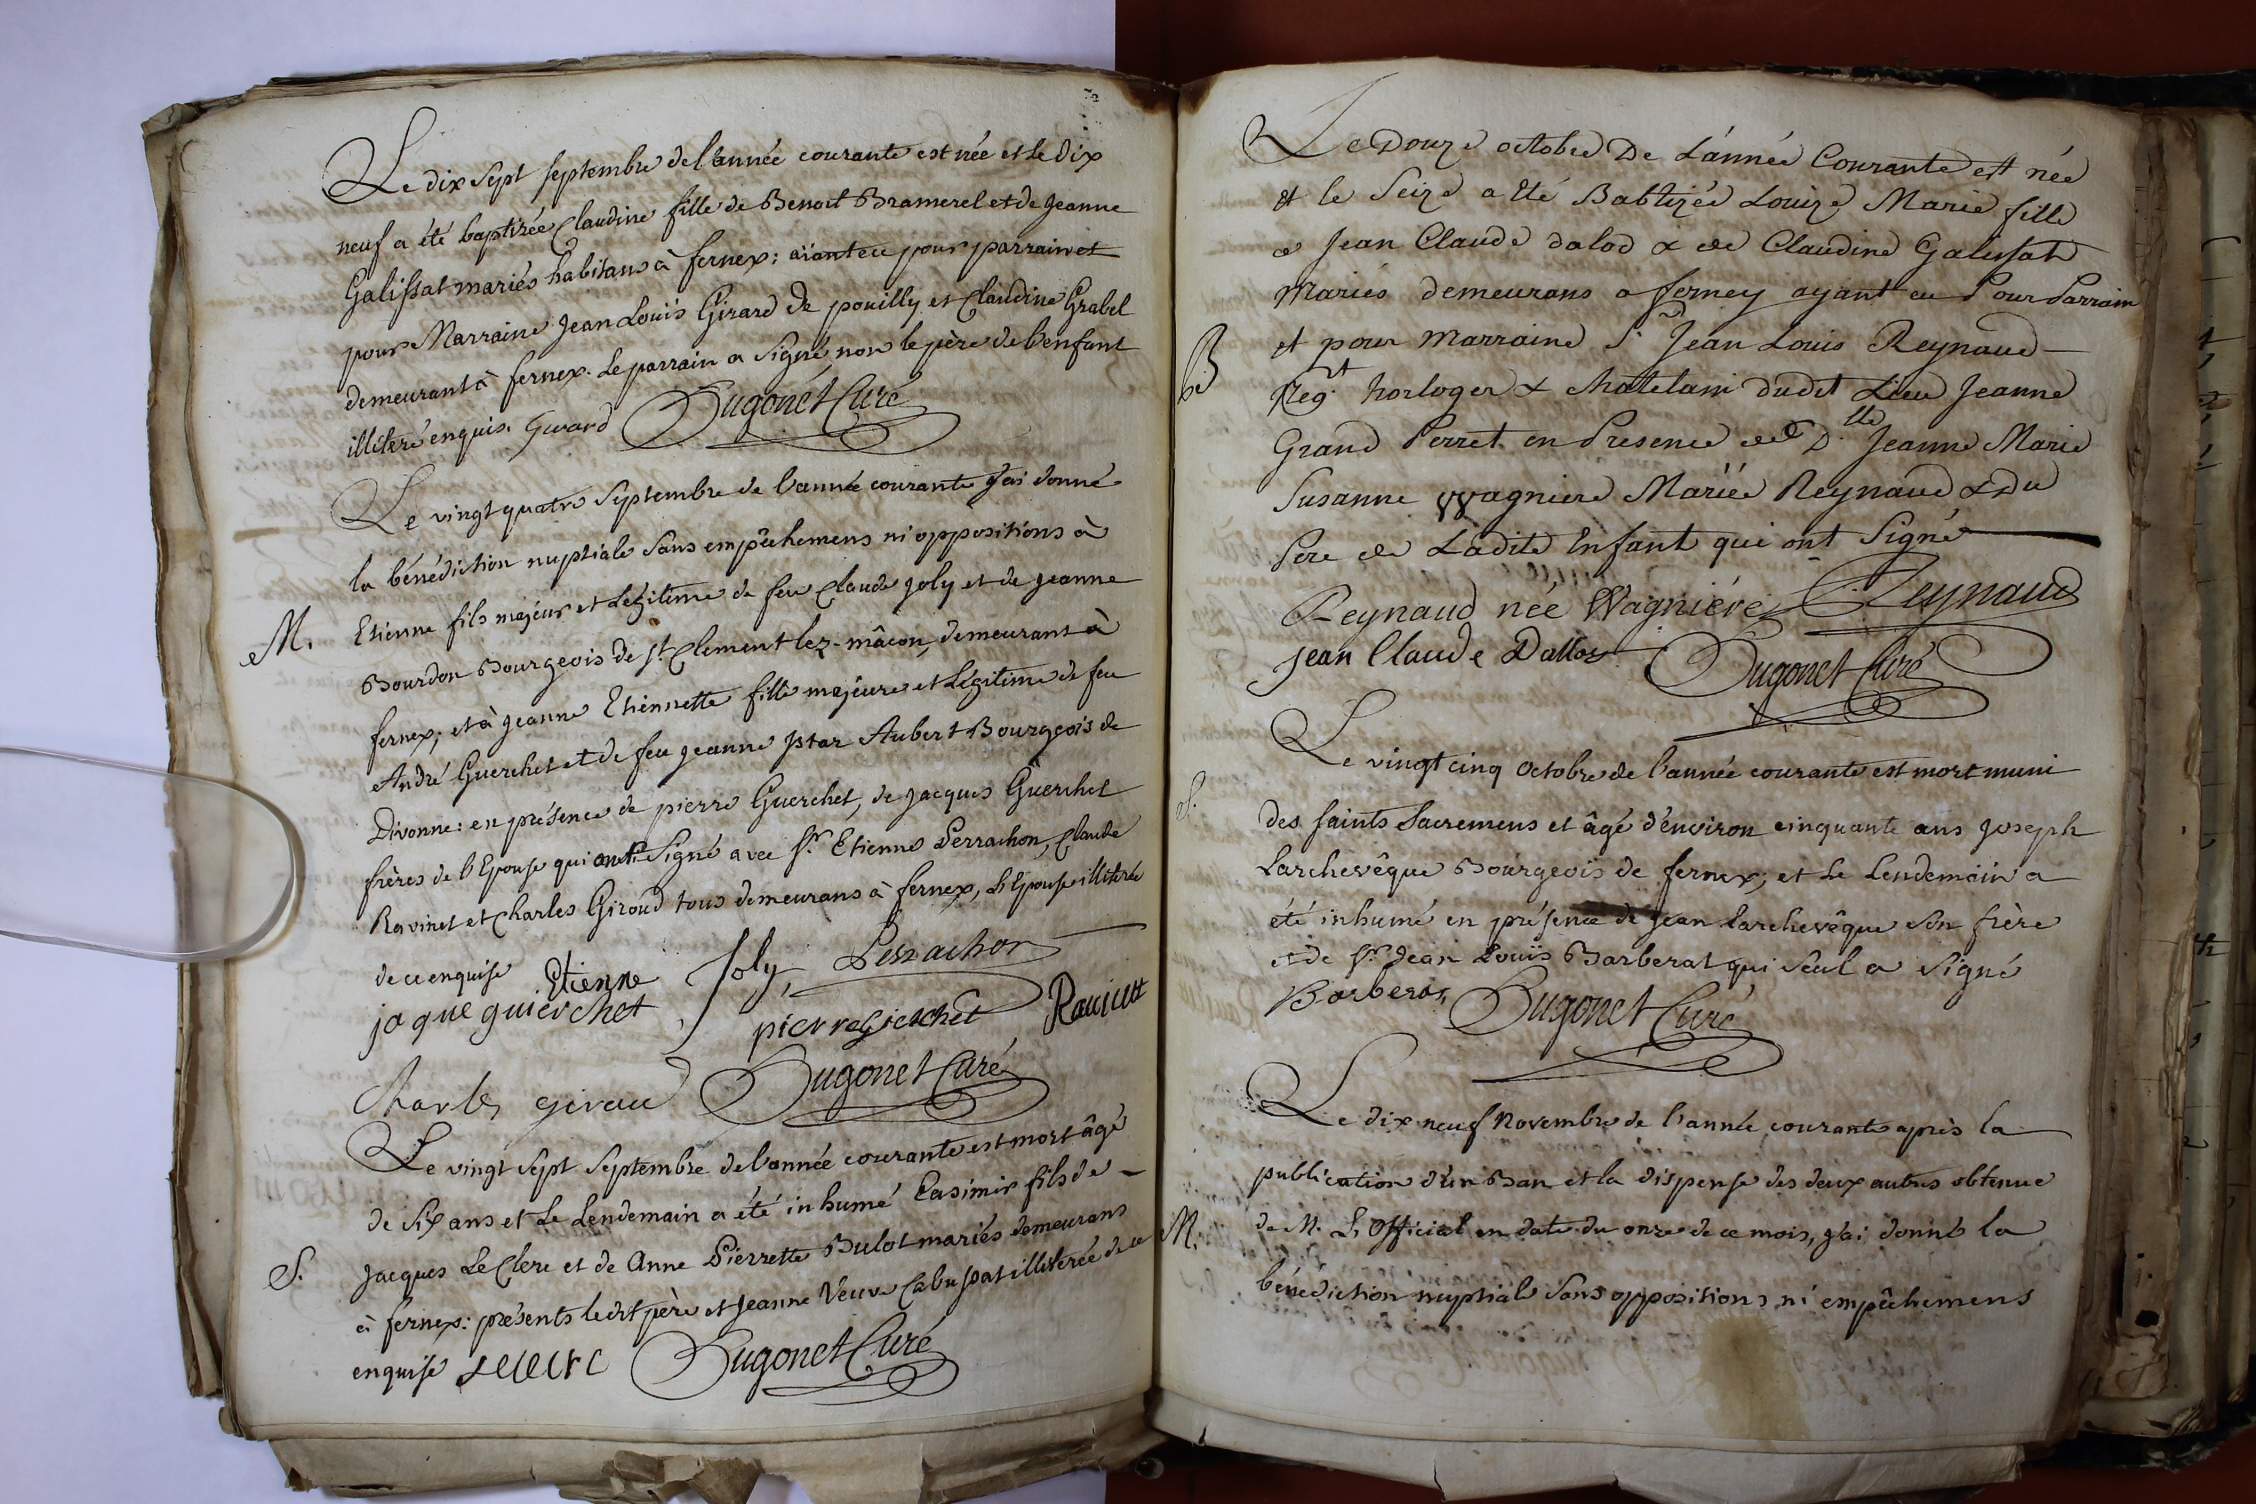 Le dix sept septembre de l'année courante est née et le dix
neuf a été baptisée Claudine fille de Benoit Bramerel et de Jeanne
Galissat mariés habitans à fernex: aïant eu pour parrain et
pour Marraine Jean Louis Girard de pouilly et Claudine Grabel
demeurant à fernex. Le parrain a signé, non le père de l'enfant
illiteré enquis. Girard Hugonet Curé
Le vingt quatre septembre de l'année courante j'ai donné
la bénédiction nuptiale sans empêchemens ni oppositions à
M. Etienne fils majeur et Légitime de feu Claude Joly et de Jeanne
Bourdon Bourgeois de St. Clement lez-mâcon, demeurant à
fernex; et à Jeanne Etiennette fille majeure et Légitime de feu
André Guerchet et de feu Jeanne Aubert Bourgeois de
Divonne: en présence de pierre Guerchet, de Jacques Guerchet
frères de l'Epouse qui ont signé avec Sr. Etienne Perrachon, Claude
Ravinet et Charles Giroud tous demeurans à fernex, L'Epouse illiterée
de ce enquise Etienne Joly Perrachon
jaque guierchet pierre Ravinet
Charles giroud Hugonet Curé
Le vingt sept septembre de l'année courante est mort âgé
de six ans et Le Lendemain a été inhumé Casimir fils de
S. Jacques Le Clerc et de Anne Pierrette Bulot mariés demeurans
à fernex: présents le dit père et Jeanne Veuve illiterée de ce
enquise Leclerc Hugonet Curé
Le Douze octobre De L'année Courante est née
et le Seize a Eté Babtizée Louize Marie fille
de Jean Claude dalod & de Claudine Galissat
Mariés demeurans a ferney ayant eu Pour Parrain
B et pour Marraine Sr. Jean Louis Reynaud
Negt. horloger & chatelain dudit Lieu Jeanne
Grand Perret en Presence de Dlle Jeanne Marie
Susanne Wagniere Mariée Reynaud & Du
Pere de Ladite Enfant qui ont Signé
Reynaud née Wagnière Reynaud
Jean Claude Dallod Hugonet Curé
Le vingt cinq Octobre de l'année courante est mort muni
S. des saints Sacremens et âgé d'environ cinquante ans Joseph
Larchevêque Bourgeois de fernex; et Le Lendemain a
été inhumé en présence de Jean Larchevêque son frère
et de Sr. Jean Louis Barberat qui seul a signé
Barberat Hugonet Curé
Le dix neuf Novembre de l'année courante après la
publication d'un Ban et la dispense des deux autres obtenue
M. de M. L'Official en date du onze de ce mois, j'ai donné la
bénédiction nuptiale sans oppositions ni empêchemens